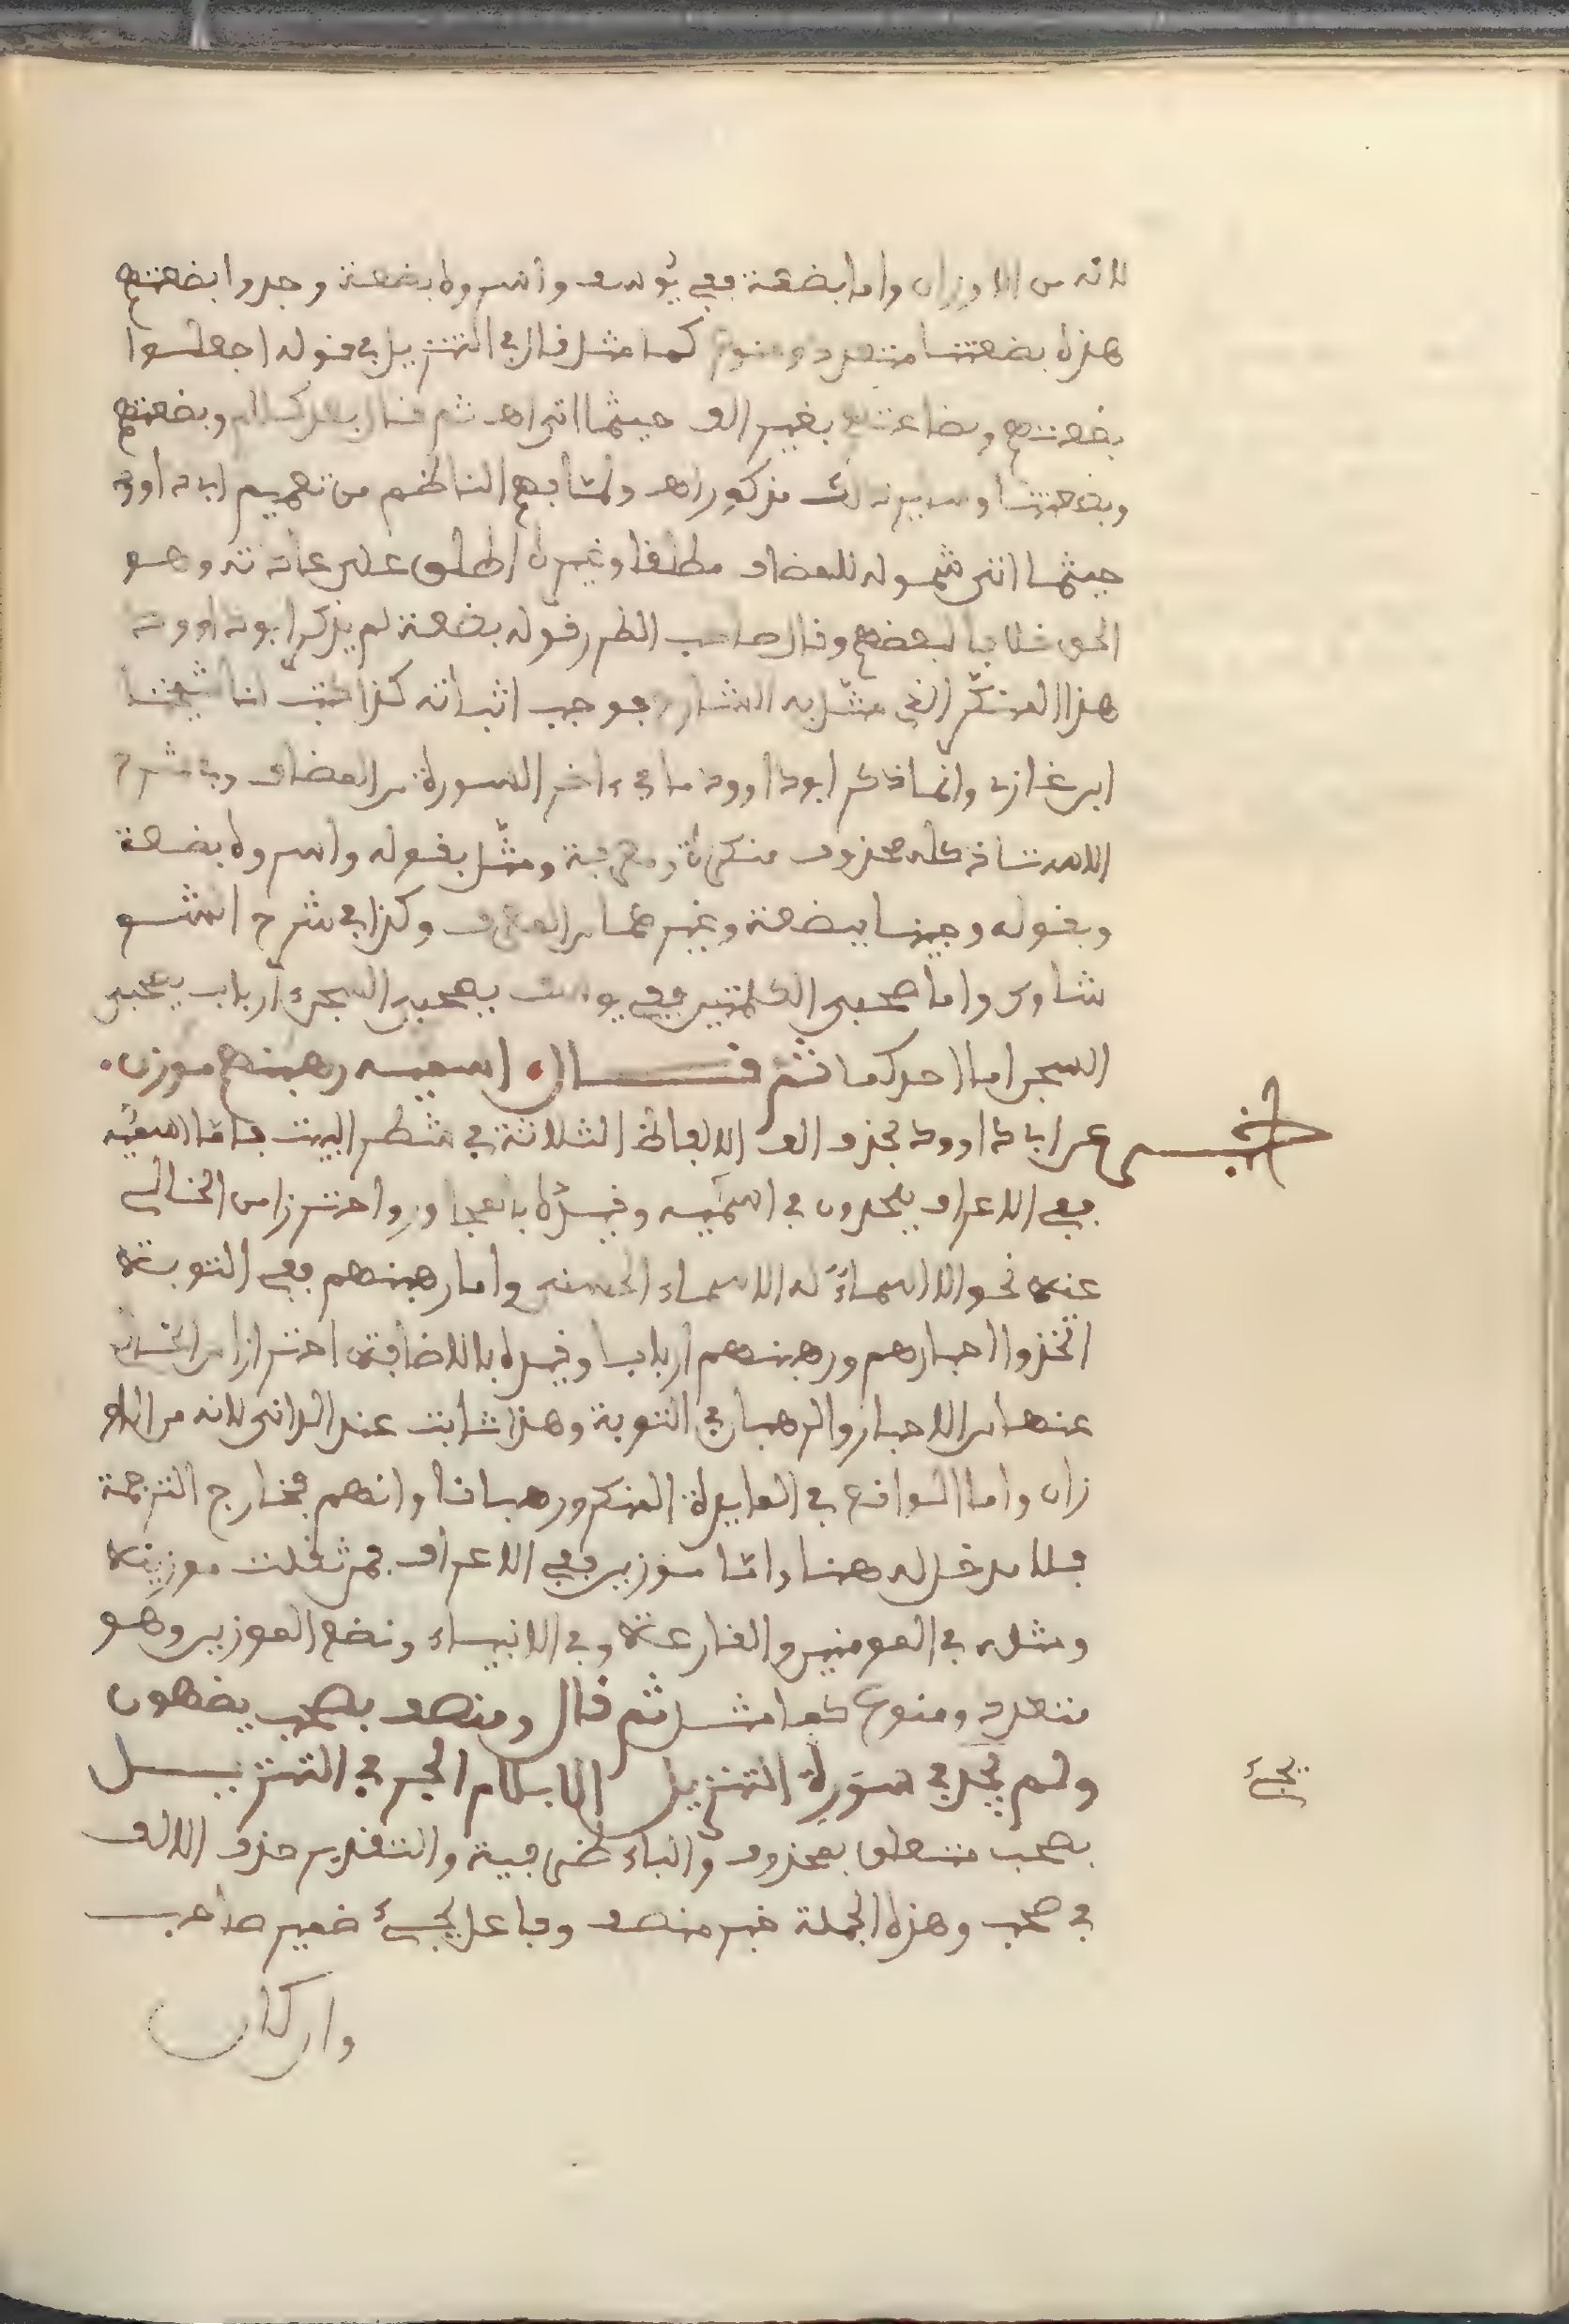 لانه من الاوزان واما بضعة ففي يوسف واسروه بضعة وجدوا بضعتهم
هذه بضعتنا متعدد ومنوع كما مثل قال في التنزيل في قوله اجعلوا
بضعتهم وبضاعتهم بغير الف حيثما اتى اهـ ثم قال بعد كلام وبضعتهم
وبضعتنا وسيرذلك مذكور اهـ ولمتابع الناظم من تعميم ابى داوود
حيثما اتى شموله للمضاف مطلقا وغيره اطلق على عادته وهو
الحق خلافا لبعضهم وقال صاحب الطرر قوله بضعة لم يذكر ابو داوود
هذا المنكر الذي مثل به الشارح فوجب اثباته كذا كتب لنا شيخنا
ابن غازي وانما ذكر ابو داوود ما في ءاخر السورة من المضاف وفي شرح
الاستاذ كله محذوف منكرة ومعرفة ومثل بقوله واسروه بضعة
وبقوله وجينا ببضعة وغيرهما من المعرف وكذا في شرح الشو
شاوي واما صحبي الكلمتين ففي يوسف يصحبي السجن ءارباب يصحبي
السجن اما احدكما ثم قال اسميه رهبنهم موزن
اخبر عن ابى داوود بحذف الف الالفاظ الثلاثة في شطر البيت فاما اسميه
ففي الاعراف يلحدون في اسميه وقيده بالمجاور واحترز من الخالي
عنه نحو الاسماء له الاسماء الحسنى واما رهبنهم ففي التوبة
اتخذوا احبارهم ورهبنهم اربابا وقيده بالاضافة احترازا من الخالي
عنها من الاحبار والرهبان في التوبة وهذا ثابت عند الداني لانه من الاو
زان واما الواقع في المايدة المنكر ورهبانا وانهم فخارج الترجمة
فلا مدخل له هنا واما موزين ففي الاعراف فمن ثقلت موزينه
ومثله في المومنين والقارعة وفي الانبياء ونضع الموزين وهو
متعدد ومنوع كما مثل ثم قال ومنصف بصحب يضهون
ولم يجئ في سورة التنزيل الا بلام الجر في التنزيل
يجئ
بصحب متعلق بمحذوف والباء ظرفية والتقدير حذف الالف
في صحب وهذه الجملة خبر منصف وفاعل يجئ ضمير صاحب
وان كان